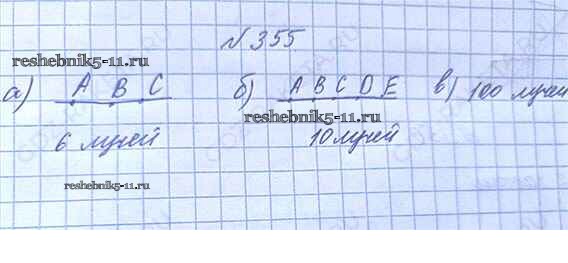 №355
reshebnik5-11.ru
а) A B C б) A B C D E в) 100 лучей
reshebnik5-11.ru
6 лучей 10 лучей
reshebnik5-11.ru